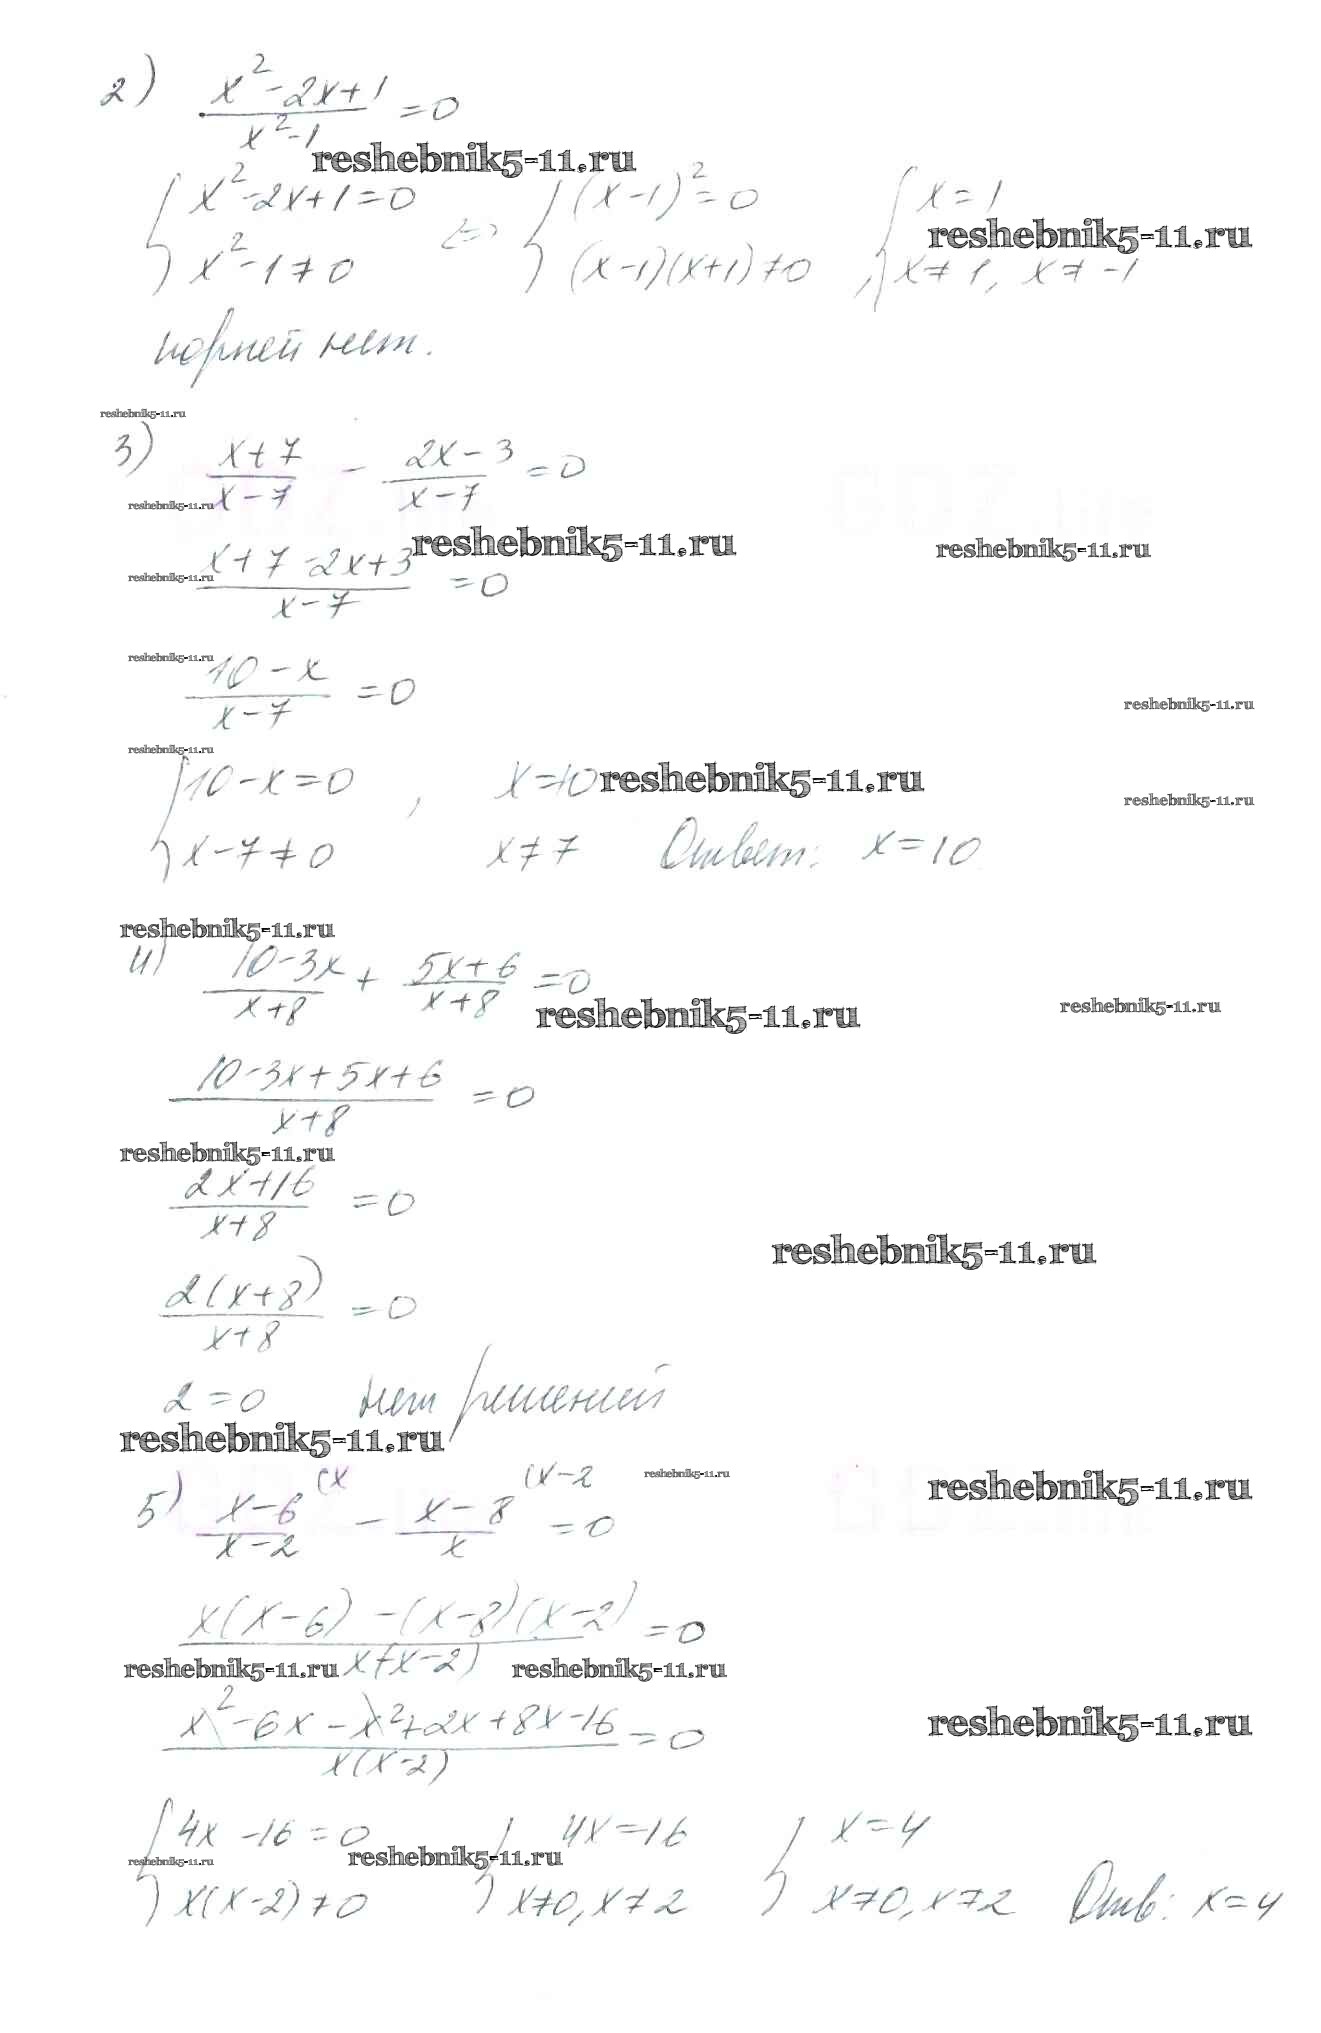 2) (x²-2x+1)/(x²-1) = 0
reshebnik5-11.ru
{ x²-2x+1=0 <=> { (x-1)²=0 { x=1
reshebnik5-11.ru
x²-1≠0 (x-1)(x+1)≠0 x≠1, x≠-1
корней нет.
reshebnik5-11.ru
3) (x+7)/(x-7) - (2x-3)/(x-7) = 0
reshebnik5-11.ru
reshebnik5-11.ru reshebnik5-11.ru
(x+7-2x+3)/(x-7) = 0
reshebnik5-11.ru
reshebnik5-11.ru
(10-x)/(x-7) = 0
reshebnik5-11.ru
reshebnik5-11.ru
{ 10-x=0 , x=10 reshebnik5-11.ru
reshebnik5-11.ru
x-7≠0 x≠7 Ответ: x=10
reshebnik5-11.ru
4) (10-3x)/(x+8) + (5x+6)/(x+8) = 0
reshebnik5-11.ru reshebnik5-11.ru
(10-3x+5x+6)/(x+8) = 0
reshebnik5-11.ru
(2x+16)/(x+8) = 0
reshebnik5-11.ru
2(x+8)/(x+8) = 0
2=0 нет решений
reshebnik5-11.ru
reshebnik5-11.ru reshebnik5-11.ru
5) (x-6)/(x-2) (x - (x-8)/x (x-2 = 0
(x(x-6)-(x-8)(x-2))/(x(x-2)) = 0
reshebnik5-11.ru reshebnik5-11.ru
(x²-6x-x²+2x+8x-16)/(x(x-2)) = 0
reshebnik5-11.ru
{ 4x-16=0 { 4x=16 { x=4
reshebnik5-11.ru reshebnik5-11.ru
x(x-2)≠0 x≠0, x≠2 x≠0, x≠2 Отв: x=4